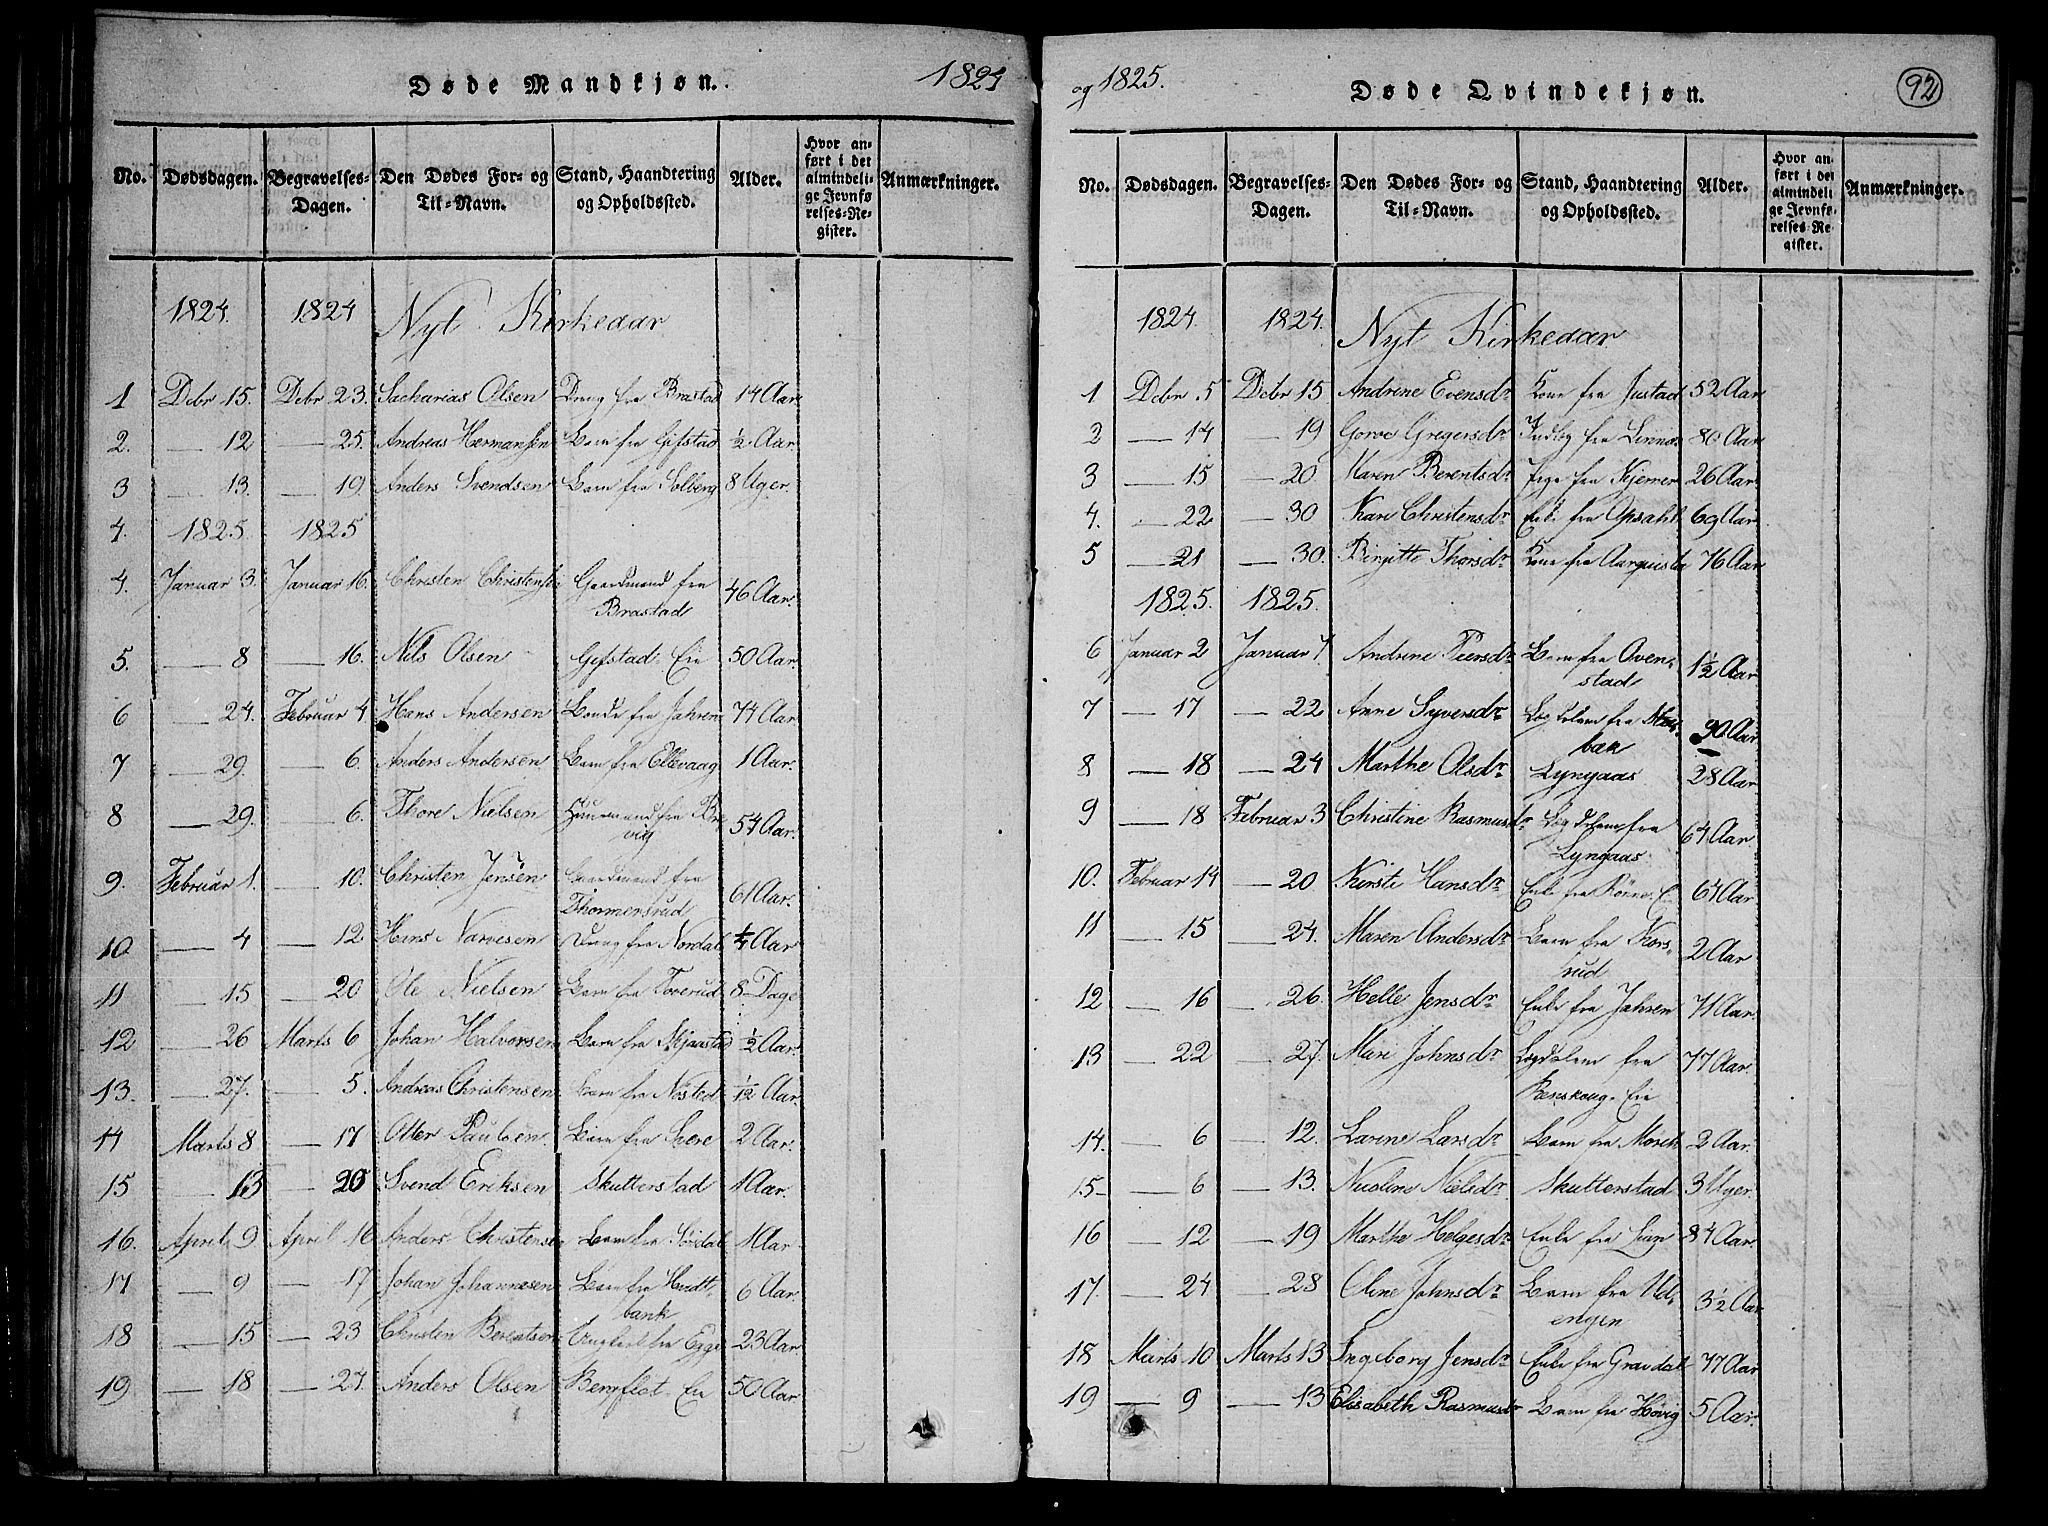 Døde Mandkjøn. 1824
No. Dødsdagen. Begravelses-Dagen. Den Dødes For- og Til-Navn. Stand, Haandtering og Opholdssted. Alder. Hvor anført i det almindelige Jevnførelses-Register. Anmærkninger.
1824. 1824 Nyt Kirkeaar
1 Dcbr 15. Dcbr 23. Sacharias Olsen Dreng fra Brastad 14 Aar
2. — 12 — 25. Andreas Hermansen Barn fra Gifstad ½ Aar
3 — 13. — 19. Anders Svendsen Barn fra Solberg 8 Uger.
4. 1825 1825
4. Januar 3. Januar 16. Christen Christensen Gaardmand fra
Brastad 46 Aar.
5. — 8 — 16. Nils Olsen Gifstad Eie 50 Aar.
6 — 24. Februar 4 Hans Andersen fra Jahren 74 Aar.
7 — 29. — 6. Anders Andersen Barn fra Ellevaag 1 Aar.
8 — 29. — 6. Thore Nielsen Huusmand fra
vig 54 Aar.
9. Februar 1. — 10. Christen Jensen Gaardmand fra
Thormersrud 61 Aar.
10 — 4 — 12 Hans Narvesen Dreng fra Nordal Aar
11 — 15 — 20 Ole Nielsen Barn fra Toverud 8 Dage
12 — 26 Marts 6 Johan Halvorsen Barn fra Skjaastad ½ Aar.
13. — 27. — 5. Andreas Christensen Barn fra Nøsted 1/12 Aar.
14 Marts 8 — 17 Otter Paulsen. Barn fra 2 Aar.
15 — 13 — 20 Svend Eriksen Skutterstad 1 Aar.
16. April 9 April 16 Anders Christensen Barn fra Sørdal 1 Aar
17 — 9 — 17 Johan Johannesen Barn fra
bank 6 Aar.
18 — 15 — 23 Christen Berentsen Ungkarl fra Egge 23 Aar.
19 — 18 — 24. Anders Olsen Bergflot Eie 50 Aar.
og 1825. Døde Qvindekjøn. 92
No. Dødsdagen. Begravelses-Dagen. Den Dødes For- og Til-Navn. Stand, Haandtering og Opholdssted. Alder. Hvor anført i det almindelige Jevnførelses-Register. Anmærkninger.
1824. 1824. Nyt Kirkeaar
1 Dcbr 5 Dcbr 15 Andrine Evensdr Kone fra Justad 52 Aar
2 — 14 — 19 Gorve Gregersdr Indlog fra Linnes 80 Aar
3 — 15 — 20 Karen Berentsdr Pige fra Kjerner 26 Aar
4. — 22 — 30 Kari Christensdr Enke fra Opsahl 69 Aar
5 — 21 — 30. Birgitte Thorsdr Kone fra Aarquisla 76 Aar
1825. 1825.
6 Januar 2 Januar 7. Andrine Peersdr Barn fra Oven-
stad 1½ Aar
7 — 17 — 22 Anne Syversdr Lægdslem fra
bak 90 Aar
8 — 18 — 24 Marthe Olsdr Lyngaas 28 Aar
9 — 18 Februar 3 Christine Rasmusdr Lægdslem fra
Lyngaas 64 Aar
10. Februar 14 — 20 Kirsti Hansdr Enke fra Rørne E 64 Aar
11 — 15 — 24. Maren Andersdr Barn fra Kors-
rud 2 Aar
12 — 16 — 26. Helle Jensdr Enke fra Jahren 71 Aar.
13 — 22 — 27. Mari Johnsdr Lægdslem fra
Renskoug Eie 77 Aar.
14. — 6 — 12. Larine Larsdr Barn fra Moseth 2 Aar.
15- — 6 — 13. Nicoline Nielsdr Skutterstad 3 Uger.
16 — 12 — 19 Marthe Helgesdr Enke fra Lian 84 Aar.
17. — 24 — 28 Oline Johnsdr Barn fra Ud-
engen 3½ Aar
18 Marts 10 Marts 13 Ingeborg Jensdr Enke fra Gravdal 77 Aar
19 — 9 — 13 Elisabeth Rasmusdr Barn fra Høvig 5 Aar.